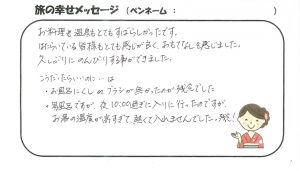 旅の幸せメッセージ （ペンネーム： ）
お料理も温泉もとてもすばらしかったです。
はたらいている皆様もとても感じが良く、おもてなしを感じました。
久しぶりにのんびりする事ができました。
こうだったらいいのに…は
・お風呂にくし or ブラシが無かったのが残念でした
・風呂ですが、夜10:00過ぎに入りに行ったのですが、
お湯の温度が高すぎて、熱くて入れませんでした。残念！